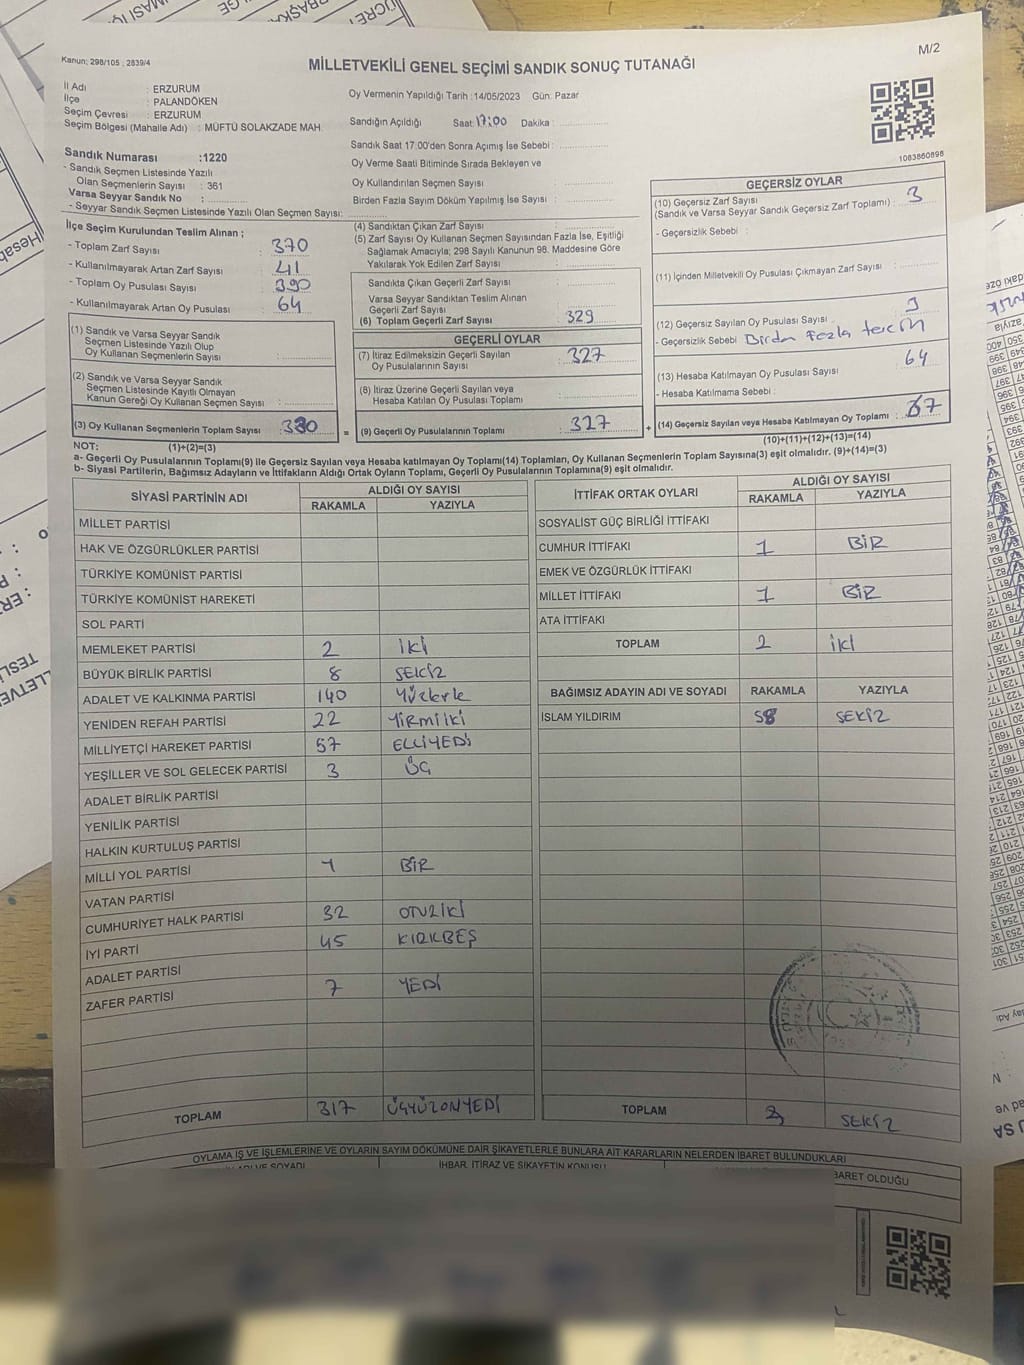 M/2
Kanun: 298/105 , 2839/4
MİLLETVEKİLİ GENEL SEÇİMİ SANDIK SONUÇ TUTANAĞI
İl Adı : ERZURUM
İlçe : PALANDÖKEN
Seçim Çevresi : ERZURUM
Seçim Bölgesi (Mahalle Adı) : MÜFTÜ SOLAKZADE MAH.
Oy Vermenin Yapıldığı Tarih :14/05/2023 Gün: Pazar
Sandığın Açıldığı Saat: 17:00 Dakika :
Sandık Saat 17:00'den Sonra Açımış İse Sebebi :
Oy Verme Saati Bitiminde Sırada Bekleyen ve
Oy Kullandırılan Seçmen Sayısı :
Birden Fazla Sayım Döküm Yapılmış İse Sayısı :
1083860898
Sandık Numarası :1220
- Sandık Seçmen Listesinde Yazılı
Olan Seçmenlerin Sayısı : 361
Varsa Seyyar Sandık No :
- Seyyar Sandık Seçmen Listesinde Yazılı Olan Seçmen Sayısı:
İlçe Seçim Kurulundan Teslim Alınan ;
- Toplam Zarf Sayısı : 370
- Kullanılmayarak Artan Zarf Sayısı : 41
- Toplam Oy Pusulası Sayısı : 390
- Kullanılmayarak Artan Oy Pusulası : 64
(1) Sandık ve Varsa Seyyar Sandık
Seçmen Listesinde Yazılı Olup
Oy Kullanan Seçmenlerin Sayısı :
(2) Sandık ve Varsa Seyyar Sandık
Seçmen Listesinde Kayıtlı Olmayan
Kanun Gereği Oy Kullanan Seçmen Sayısı :
(3) Oy Kullanan Seçmenlerin Toplam Sayısı :
(4) Sandıktan Çıkan Zarf Sayısı :
(5) Zarf Sayısı Oy Kullanan Seçmen Sayısından Fazla İse, Eşitliği
Sağlamak Amacıyla; 298 Sayılı Kanunun 98. Maddesine Göre
Yakılarak Yok Edilen Zarf Sayısı :
Sandıkta Çıkan Geçerli Zarf Sayısı :
Varsa Seyyar Sandıktan Teslim Alınan
Geçerli Zarf Sayısı :
(6) Toplam Geçerli Zarf Sayısı : 329
GEÇERLİ OYLAR
(7) İtiraz Edilmeksizin Geçerli Sayılan
Oy Pusulalarının Sayısı : 327
(8) İtiraz Üzerine Geçerli Sayılan veya
Hesaba Katılan Oy Pusulası Toplamı :
= (9) Geçerli Oy Pusulalarının Toplamı : 327
GEÇERSİZ OYLAR
(10) Geçersiz Zarf Sayısı
(Sandık ve Varsa Seyyar Sandık Geçersiz Zarf Toplamı) : 3
- Geçersizlik Sebebi :
(11) İçinden Milletvekili Oy Pusulası Çıkmayan Zarf Sayısı :
(12) Geçersiz Sayılan Oy Pusulası Sayısı :
- Geçersizlik Sebebi : Birden fazla tercih
(13) Hesaba Katılmayan Oy Pusulası Sayısı : 64
- Hesaba Katılmama Sebebi :
+ (14) Geçersiz Sayılan veya Hesaba Katılmayan Oy Toplamı : 67
NOT: (1)+(2)=(3)
(10)+(11)+(12)+(13)=(14)
a- Geçerli Oy Pusulalarının Toplamı(9) ile Geçersiz Sayılan veya Hesaba katılmayan Oy Toplamı(14) Toplamları, Oy Kullanan Seçmenlerin Toplam Sayısına(3) eşit olmalıdır. (9)+(14)=(3)
b- Siyasi Partilerin, Bağımsız Adayların ve İttifakların Aldığı Ortak Oyların Toplamı, Geçerli Oy Pusulalarının Toplamına(9) eşit olmalıdır.
SİYASİ PARTİNİN ADI
ALDIĞI OY SAYISI
RAKAMLA YAZIYLA
MİLLET PARTİSİ
HAK VE ÖZGÜRLÜKLER PARTİSİ
TÜRKİYE KOMÜNİST PARTİSİ
TÜRKİYE KOMÜNİST HAREKETİ
SOL PARTİ
MEMLEKET PARTİSİ 2 İKİ
BÜYÜK BİRLİK PARTİSİ 8 SEKİZ
ADALET VE KALKINMA PARTİSİ 140
YENİDEN REFAH PARTİSİ 22 YİRMİİKİ
MİLLİYETÇİ HAREKET PARTİSİ 57 ELLİYEDİ
YEŞİLLER VE SOL GELECEK PARTİSİ 3 ÜÇ
ADALET BİRLİK PARTİSİ
YENİLİK PARTİSİ
HALKIN KURTULUŞ PARTİSİ
MİLLİ YOL PARTİSİ 1 BİR
VATAN PARTİSİ
CUMHURİYET HALK PARTİSİ 32 OTUZİKİ
İYİ PARTİ 45 KIRKBEŞ
ADALET PARTİSİ
ZAFER PARTİSİ 7 YEDİ
TOPLAM 317 ÜÇYÜZONYEDİ
İTTİFAK ORTAK OYLARI
ALDIĞI OY SAYISI
RAKAMLA YAZIYLA
SOSYALİST GÜÇ BİRLİĞİ İTTİFAKI
CUMHUR İTTİFAKI 1 BİR
EMEK VE ÖZGÜRLÜK İTTİFAKI
MİLLET İTTİFAKI 1 BİR
ATA İTTİFAKI
TOPLAM 2 İKİ
BAĞIMSIZ ADAYIN ADI VE SOYADI RAKAMLA YAZIYLA
İSLAM YILDIRIM SEKİZ
TOPLAM SEKİZ
OYLAMA İŞ VE İŞLEMLERİNE VE OYLARIN SAYIM DÖKÜMÜNE DAİR ŞİKAYETLERLE BUNLARA AİT KARARLARIN NELERDEN İBARET BULUNDUKLARI
İHBAR, İTİRAZ VE ŞİKAYETİN KONUSU
BARET OLDUĞU